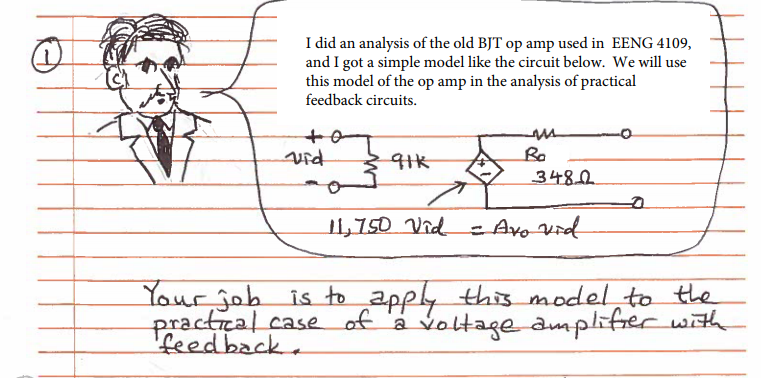 1
I did an analysis of the old BJT op amp used in EENG 4109,
and I got a simple model like the circuit below. We will use
this model of the op amp in the analysis of practical
feedback circuits.
+
vid 91K + Ro
- - 348Ω
11,750 Vid = Avo vid
Your job is to apply this model to the
practical case of a voltage amplifier with
feedback.